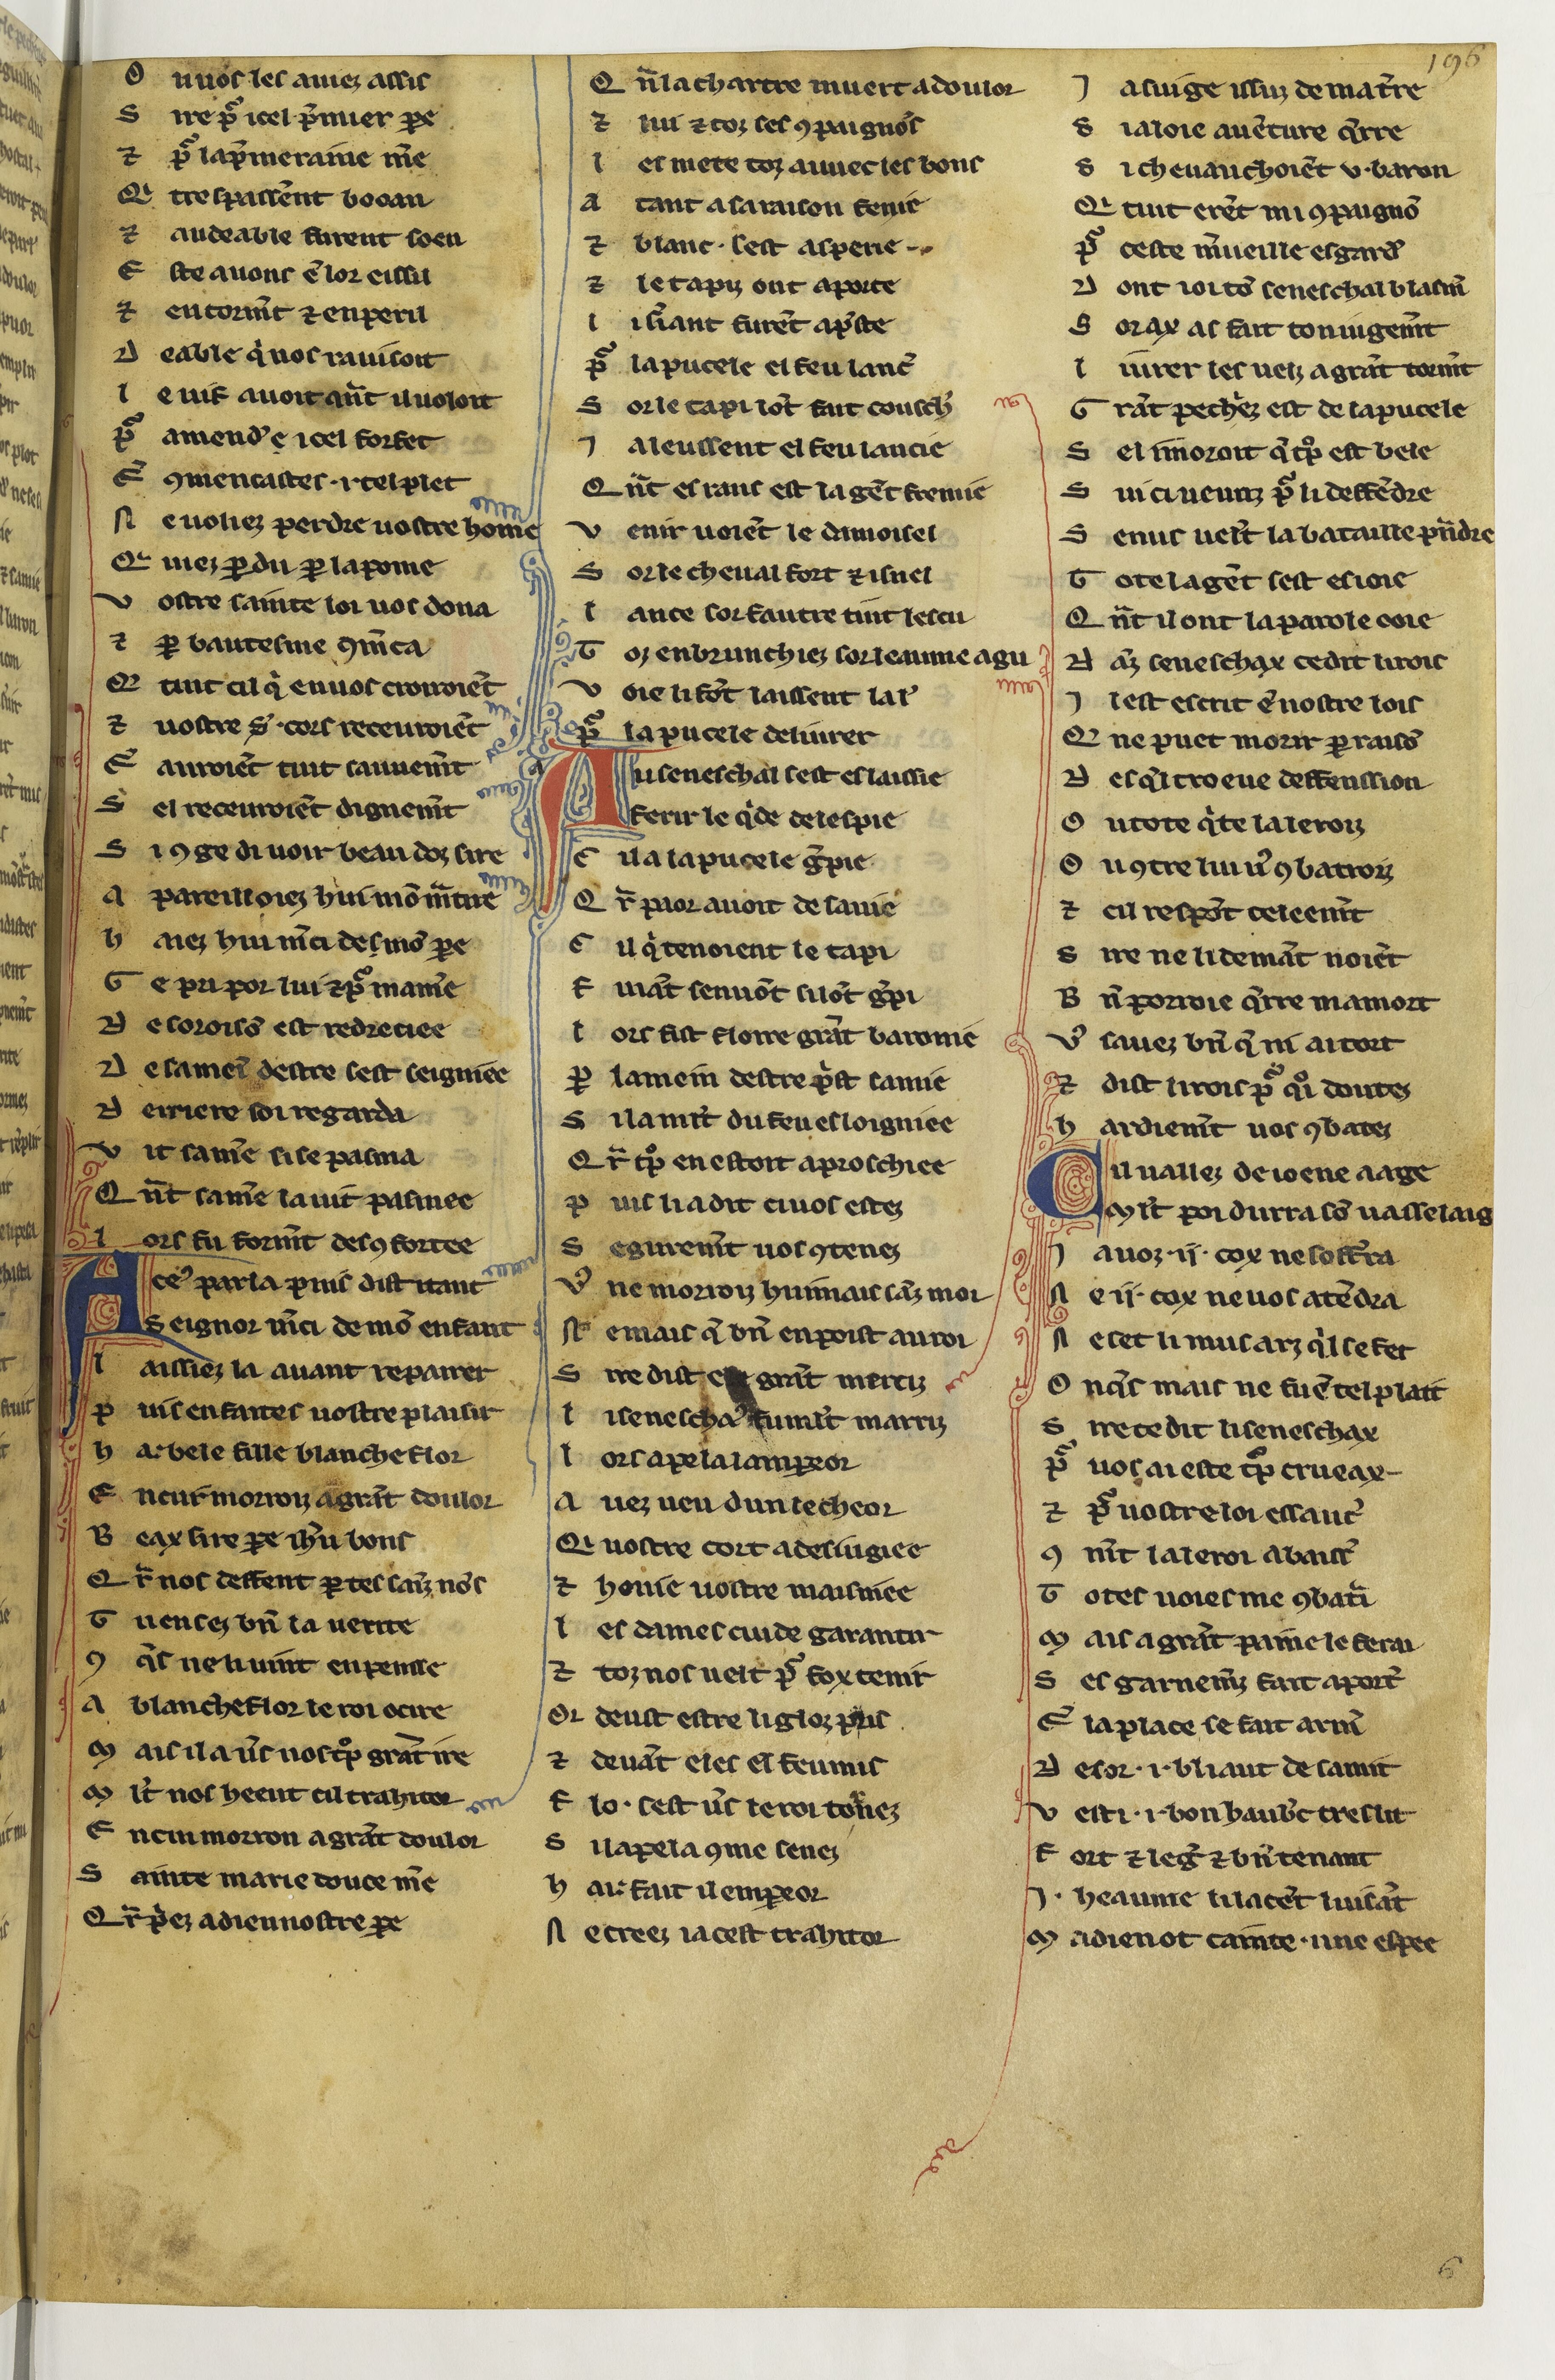 196
O u uos les auiez assis
S ire pͬ icel p̃mier pe
⁊ pͬ la p̃meraine me̅
Qi trespassẽnt boban
⁊ au deable furent soen
E ste auons ẽ lor eissil
⁊ en tormt̅ ⁊ en peril
D eable qͥ nos rauisoit
L e uif auoit qñt il uoloit
Pͬ amendˀ e icel forfet
E̅ ꝯmencastes ·i· tel plet
N e uoliez perdre uostre home
Qi iuez ꝑdu ꝑ la pome
V ostre sainte loi uos dona
⁊ ꝑ bautesme ꝯm̅ca
Q tuit cil qͥ en uos crouroie̅t
⁊ uostre s̅· cors receuroie̅t
E̅ auroie̅t tuit sauuem̅t
S el receuroie̅t dignem̅t
S i ꝯ ge di uoir beau doz sire
A pareilloiez hui mo̅ m̃tire
H aiez hui m̅ci des mo̅s pe
G e pri por lui ⁊ pͬ ma me̅
D e s oroiso̅ est redreciee
D e sa mei̅ destre sest seigniee
D erriere soi regarda
V it sa me̅ si se pasma
Q n̅t sa me̅ la uit pasmee
L ors fu form̅t desꝯfortee
A ceˀ parla puis dist itant
S eignor m̅ci de mo̅ enfant
L aissiez la auant repairer
P uis en faites uostre plaisir
H a: bele fille blancheflor
E ncui morroiz a gra̅t doulor
B eax sire pe ihũ bons
Q r̃ nos deffent ꝑ tes sai̅z no̅s
T u en sez bn̅ la uerite
ꝯ q̃s ne li uint en pensse
A blancheflor le roi ocire
M ais il a u̅s nos tͦp gra̅t ire
M lt̅ nos heent cil trahitor
E ncui morron a gra̅t doulor
S ainte marie douce me̅
Q r̃ pͥez a dieu nostre pe
Q ñ la chartre muert a doulor
⁊ lui ⁊ toz ses ꝯpaigno̅s
L es mete toz auuec les bons
A tant a sa raison fenie
⁊ blanc· sest asperie
⁊ le tapiz ont aporte
L i s̃iant fure̅t ap̅ste
Pͬ la pucele el feu lanc̃
S or le tapi lo̅t fait couschˀ
J a leussent el feu lancie
Q n̅t es rans est la ge̅t fremie
V enir uoie̅t le damoisel
S or le cheual fort ⁊ isnel
L ance sor fautre tint lescu
T oz enbrunchiez sor leaume agu
V oie li fo̅t laissent lalˀ
Pͬ la pucele deliurer
A u seneschal sest eslaissie
Ferir le qͥde de lespie
C il a la pucele g̃pie
Q r̃ paor auoit de sa uie
C il qͥ tenoient le tapi
F uia̅t senuo̅t si lo̅t g̃pi
L ors fist floire gra̅t baronie
P̱ la mein destre pͥst samie
S i la mit̅ du feu esloigniee
Q r̃ tͦp en estoit aproschiee
P uis li a dit ci uos estez
S eguremt̅ uos ꝯtenez
Vˀ ne morroiz huimais sa̅z moi
N e mais q̃ bn̅ en poist au roi
S ire dist ele gra̅t merciz
L i seneschaˣ fu ml̅t marriz
L ors apela lamꝑeor
A uez ueu dun lecheor
Qi uostre cort a desiugiee
⁊ honie uostre maisniee
L es dames cuide garantir
⁊ toz nos uelt pͬ fox tenir
Or deust estre li gloz pris
⁊ deua̅t eles el feu mis
F lo· sest u̅s le roi torñez
S i lapela ꝯme senez
H a: fait il emꝑeor
N e creez ia cest trahitor
J a s iuige issuz de mat̃re
S ia loie aue̅ture q̃rre
S i cheuauchoie̅t v· baron
Qi tuit ere̅t mi ꝯpaigno̅
Pͬ ceste m̃ueille esgardˀ
D ont ioi to̅ seneschal blasm̃
S or ax as fait ton iugem̅t
L iurer les uelz a gra̅t torm̅t
G ra̅t pechˀez est de la pucele
S el i moroit q̃ tͦp est bele
S ui ci uenuz pͬ li deffe̅dre
S e nus uelt̅ la bataille pñdre
T ote la ge̅t sest esioie
Q n̅t il ont la parole oie
D a̅z seneschax ce dit li rois
I l est escrit e̅ nostre lois
Q ne puet morir ꝑ raiso̅
D es qͥl troeue deffenssion
O u tote qͥte la leroiz
O u ꝯtre lui uˀ ꝯbatroiz
⁊ cil respo̅t celeem̅t
S ire ne li dema̅t noie̅t
B n̅ porroie q̃rre ma mort
Vˀ sauez bn̅ q̃ ni ai tort
⁊ dist li rois pͬ qͦi doutez
H ardiem̅t uos ꝯbatez
C il uallez de ioene aage
M lt̅ poi durra so̅ uasselaig
J a uoz ·ii· cox ne soff̃ra
N e ii· cox ne uos ate̅dra
N e set li musarz qͥl se fet
O nq̃s mais ne fu e̅ tel plait
S ire ce dit li seneschax
Pͬ uos ai este tͦp crueax
⁊ pͬ uostre loi essaucˀ
ꝯ m̅t la leroi abaissˀ
T otes uoies me ꝯbat̃i
M ais a gra̅t paine le ferai
S es garnem̅z fait aport̃
E̅ la place se fait arm̃
D esor ·i· bliaut de samit
V esti ·i· bon haub̃c treslit
F ort ⁊ leg̃ ⁊ bn̅ tenant
J· heaume li lace̅t luisa̅t
M adienot cainte· une espee
6